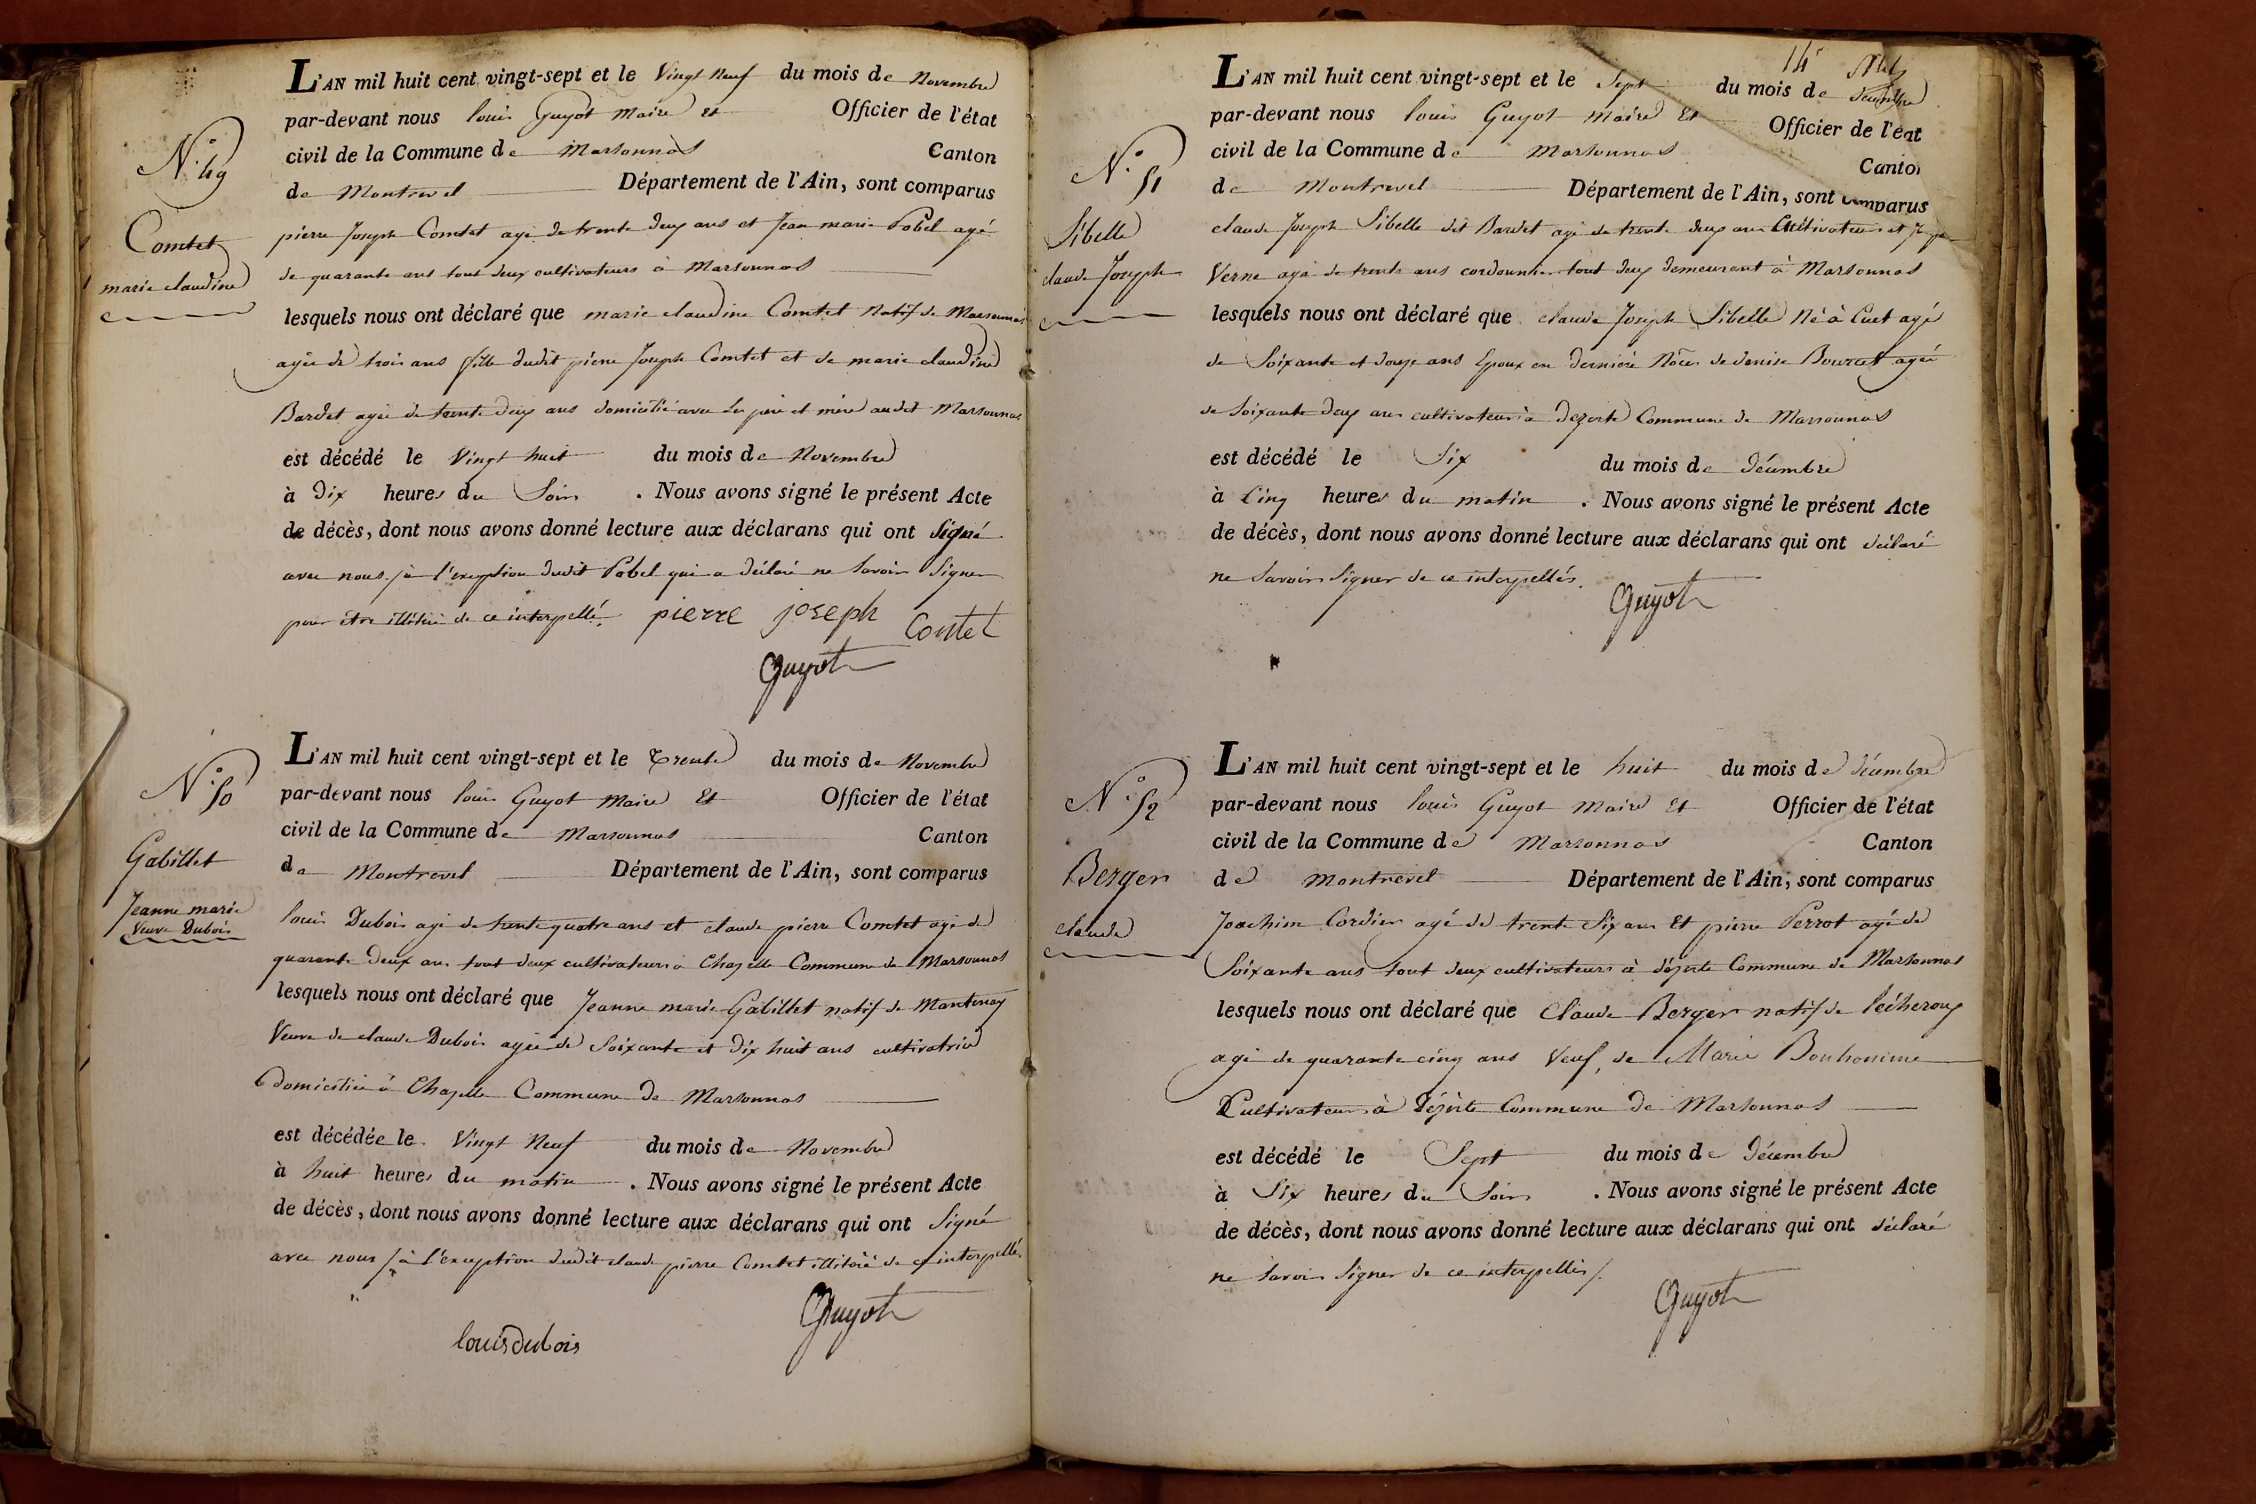 N.° 49
Comtet
marie claudine
L'AN mil huit cent vingt-sept et le Vingt Neuf du mois de Novembre
par-devant nous louis Guyot Maire et Officier de l'état
civil de la Commune de Marsonnas Canton
de Montrevel Département de l'Ain, sont comparus
pierre Joseph Comtet agé de trente deux ans et Jean marie Pobel agé
de quarante ans tout deux cultivateurs à Marsonnas
lesquels nous ont déclaré que marie claudine Comtet Natif de Marsonnas
agée de trois ans fille dudit pierre Joseph Comtet et de marie claudine
Bardet agée de trente deux ans domicilié avec les père et mère audit Marsonnas
est décédé le Vingt huit du mois de Novembre
à Dix heures du Soir. Nous avons signé le présent Acte
de décès, dont nous avons donné lecture aux déclarans qui ont Signé
avec nous à l'exeption dudit Pobel qui a déclaré ne Savoir Signer
pour être illitéré de ce interpellé. pierre joseph Contet
Guyot
N.° 50
Gabillet
Jeanne marie
Veuve Dubois
L'AN mil huit cent vingt-sept et le Trente du mois de Novembre
par-devant nous louis Guyot Maire Et Officier de l'état
civil de la Commune de Marsonnas Canton
de Montrevel Département de l'Ain, sont comparus
louis Dubois agé de trente quatre ans et claude pierre Comtet agé de
quarante deux ans tout deux cultivateurs à Chapelle Commune de Marsonnas
lesquels nous ont déclaré que Jeanne marie Gabillet natif de Mantenay
Veuve de claude Dubois agée de Soixante et dix huit ans cultivatrice
domiciliée à Chapelle Commune de Marsonnas
est décédée le Vingt Neuf du mois de Novembre
à huit heures du matin. Nous avons signé le présent Acte
de décès, dont nous avons donné lecture aux déclarans qui ont Signé
avec nous à l'exception dudit claude pierre Comtet illitéré de ce interpellé.
Guyot
louis dubois
14
N.° 51
Sibelle
claude Joseph
L'AN mil huit cent vingt-sept et le Sept du mois de Décembre
par-devant nous louis Guyot Maire Et Officier de l'état
civil de la Commune de Marsonnas Canton
de Montrevel Département de l'Ain, sont comparus
claude Joseph Sibelle dit Bardet agé de trente deux ans Cultivateur et
Verne agé de trente ans cordonnier tout deux demeurant à Marsonnas
lesquels nous ont déclaré que claude Joseph Sibelle Né à Cuet agé
de Soixante et douze ans Epoux en dernière Nôces de denise Bourcet agée
de Soixante deux ans cultivateur à dezerte Commune de Marsonnas
est décédé le Six du mois de Décembre
à Cinq heures du matin. Nous avons signé le présent Acte
de décès, dont nous avons donné lecture aux déclarans qui ont déclaré
ne Savoir Signer de ce interpellés.
Guyot
N.° 52
Berger
claude
L'AN mil huit cent vingt-sept et le huit du mois de Décembre
par-devant nous louis Guyot Maire Et Officier de l'état
civil de la Commune de Marsonnas Canton
de Montrevel Département de l'Ain, sont comparus
Joachim Cordier agé de trente Six ans Et pierre Perrot agé de
Soixante ans tout deux cultivateurs à dézerte Commune de Marsonnas
lesquels nous ont déclaré que Claude Berger natif de lécheroux
agé de quarante cinq ans Veuf, de Marie Bonhomme
Cultivateur à Dézerte Commune de Marsonnas
est décédé le Sept du mois de Décembre
à Six heures du Soir. Nous avons signé le présent Acte
de décès, dont nous avons donné lecture aux déclarans qui ont déclaré
ne Savoir Signer de ce interpellés.
Guyot